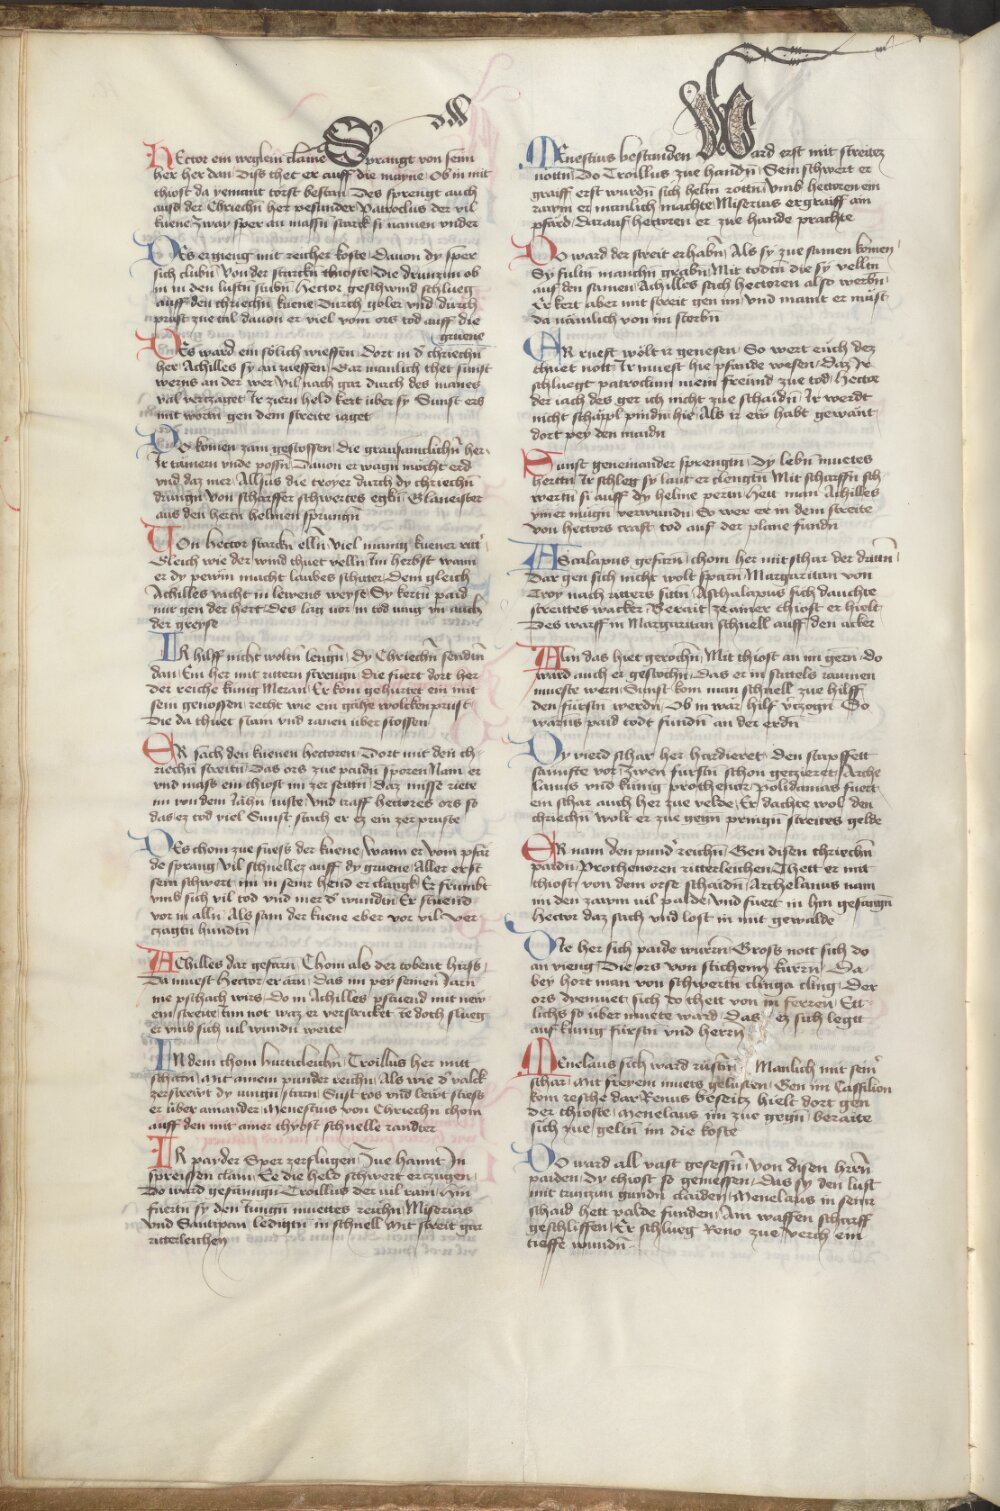 Hector ein weglein claine Sprangt von seim
her her dan Diss thet er auff die mayne Ob in mit
thiost da yemant torst bestan Des sprengt auch
auss der Chriechn her besunder Patroclus der vil
kuene Zway sper an massn starck si namen under
Des ergieng mit reicher koste Davon dy sper
sich clubn Von der starckn thioste Die drunzun ob
in in den lustn stubn Hector geschwind schlueg
auff den chriechn kuene Durch goler und durch
prust zue tal davon er viel vom ors tod auff die
gruene
Des ward ein sölich wieffen Dort in d chriechn
her Achilles sy an rieffen Gar manlich thet sunst
werns an der wer Vil nach gar durch des manes
val vertzaget Ir ziern held kert uber sy Sunst ers
mit wortn gen dem streite iaget
Do komen zam gestossen Die grausamlichn her
Ir tamern unde possn Davon er wagn mocht erd
und daz mer Allsus die troyer durch dy chriechn
drungn Von scharffer schwertes egkn Glaneister
aus den hertn helmen sprungn
Von Hector starckn elln Viel manig kuener ritt
Gleich wie der wind thuet velln Im herbst wann
er dy pewm macht laubes schitter Dem gleich
Achilles vacht in lewens weyse Sy kertn paid
nur gen der hert Des lag vor in tod iung un auch
der greyse
Ir hilff nicht woltn lengn Dy Chriechn sendtn
dan Ein her mit rittern strengn Die fuert dort her
Der reiche kunig Meran Er kom gehurtet ein mit
sein genossen recht wie ein gähe wolckenprust
Die da thuet stam und raven uber stossen
Er sach den kuenen hectoren Dort mit den ch
riechn streitn Das ors zue paidn sporen Nam er
und mass ein thiost im zer seitn Daz misse riete
im von dem Jähn iuste Und traff hectores ors so
das ez tod viel Sunst stach er ez ein zer pruste
Des chom zue fuess der kuene Wann er vom pfär
de sprang Vil schneller auff dy gruene Aller erst
sein schwert im in seinr hend er clangk Er frumbt
umb sich vil tod und mer d wundtn Er stuend
vor in alln Als sam der kuene eber vor vil ver
czagtn hundtn
Achilles dar gefarn Chom als der tobent hirss
Da muest Hector er arn Das im pey seinen Jarn
nie pschach wirs Do in Achilles psteuend mit new
em streite Im not waz er verstricket Ie doch slueg
er umb sich vil wundn weite
In dem chom hurticleichn Troillus her mitt
scharn Mit ainem punder reichn Als wie d valck
zerstreivt dy iungn starn Sust ros und lewt stiess
er uber ainander Menestius von Chriechn chom
auff den mit ainer thyost schnelle rander
Ir payder Sper zerflugen Zue hannt In
spreissen clain Ee die held schwert erczugen
Do ward gefanngn Troillus der vil rain Hin
fuertn sy den Iungn muettes reichn Miserius
Und Santipan ledigtn in schnell Mit streit gar
ritterleichen
Menestius bestanden Ward erst mit streitez
nottn Do Troillus zue handn Sein schwert er
graiff erst wurdn sich helm rottn Umb hectoren ein
rawm er manlich machte Miserius ergraiff am
pfärd Darauf hectoren er zue hande prachte
Do ward der streit erhabn Als sy zue samen komen
Sy fultn manchn grabn Mit todtn die sy velltn
auf den samen Achilles sach hectoren also werbn
Er kert aber mit streit gen im Und maint er müst
da nämlich von im sterbn
Er ruest wölt ir genesen So wert euch dez
thuet nott Ir muest hie pfande wesen Daz Ir
schluegt patroclum mein freund zue tod Hector
der iach des ger ich nicht zue schaidn Ir werdt
nicht schäpl pindn hie Als ir ew habt gewant
dort pey den maidn
Sunst geneinander sprengtn Dy lebn muetes
herttn Ir schleg sy laut er clengtn Mit scharffn sch
wertn si auff dy helme pertn Hett man Achilles
ymer mugn verwundn So wer er in dem streite
von hectors craft tod auf der plane fundn
Ascalapus gefarn chom her mit schar der drittn
Dar gen sich nicht wolt sparn Margaritan von
Troy nach ritters sitn Aschalapus sich dauchte
streittes wacker Berait ze ainer thiost er hielt
Des warff in Margaritan schnell auff den acker
Ain das hiet gerochn Mit thiost an im gern Do
ward auch er gestochn Das er in sattels raumen
mueste wern Sunst kom man schnell zue hilff
den fürstn werdn Ob in wär hilf verzogn So
warns paid todt fundn an der erdn
Dy vierd schar her hardieret Den stapffett
samfte vor Zwen furstn schon getzieret Arche
launs und kunig prothenor Polidamas fuert
ein schar auch her zue velde Er dachte wol den
chriechn wolt er zue gegn pringn streites gelde
Er nam den pund reichn Gen disen chriechn
paidn Prothenoren ritterleichen Thett er mit
thiost von dem orse schaidn Archelaus nam
im den zawm vil palde Und fuert in hin gefangn
Hector daz sach und lost in mit gewalde
Ole her sich paide wurrn Gross nott sich do
an vieng Die ors von stichenn kurrn Da
bey hort man von schwertn clinga cling Der
ors dremuet sich do thett von in ferren Ett
lichs so uber muete ward Das ez sich legtt
auf kunig furstn und herrn
Menelaus sich ward rustn Manlich mit seinr
schar Mit freyem muets gelusten Gen im Cassilion
kom resche dar Remus beseitz hielt dort gen
der thioste Menelaus im zue gegn beraite
sich zue geltn im die koste
Do ward all vast gesessn von disen herrn
paiden Dy thiost so gemessen Das sy den lust
mit trunzun gundn claiden Menelaus in seinr
schaid hett palde funden Am waffen scharff
geschliffen Er schlueg Remo zue verch ein
tieffe wundn